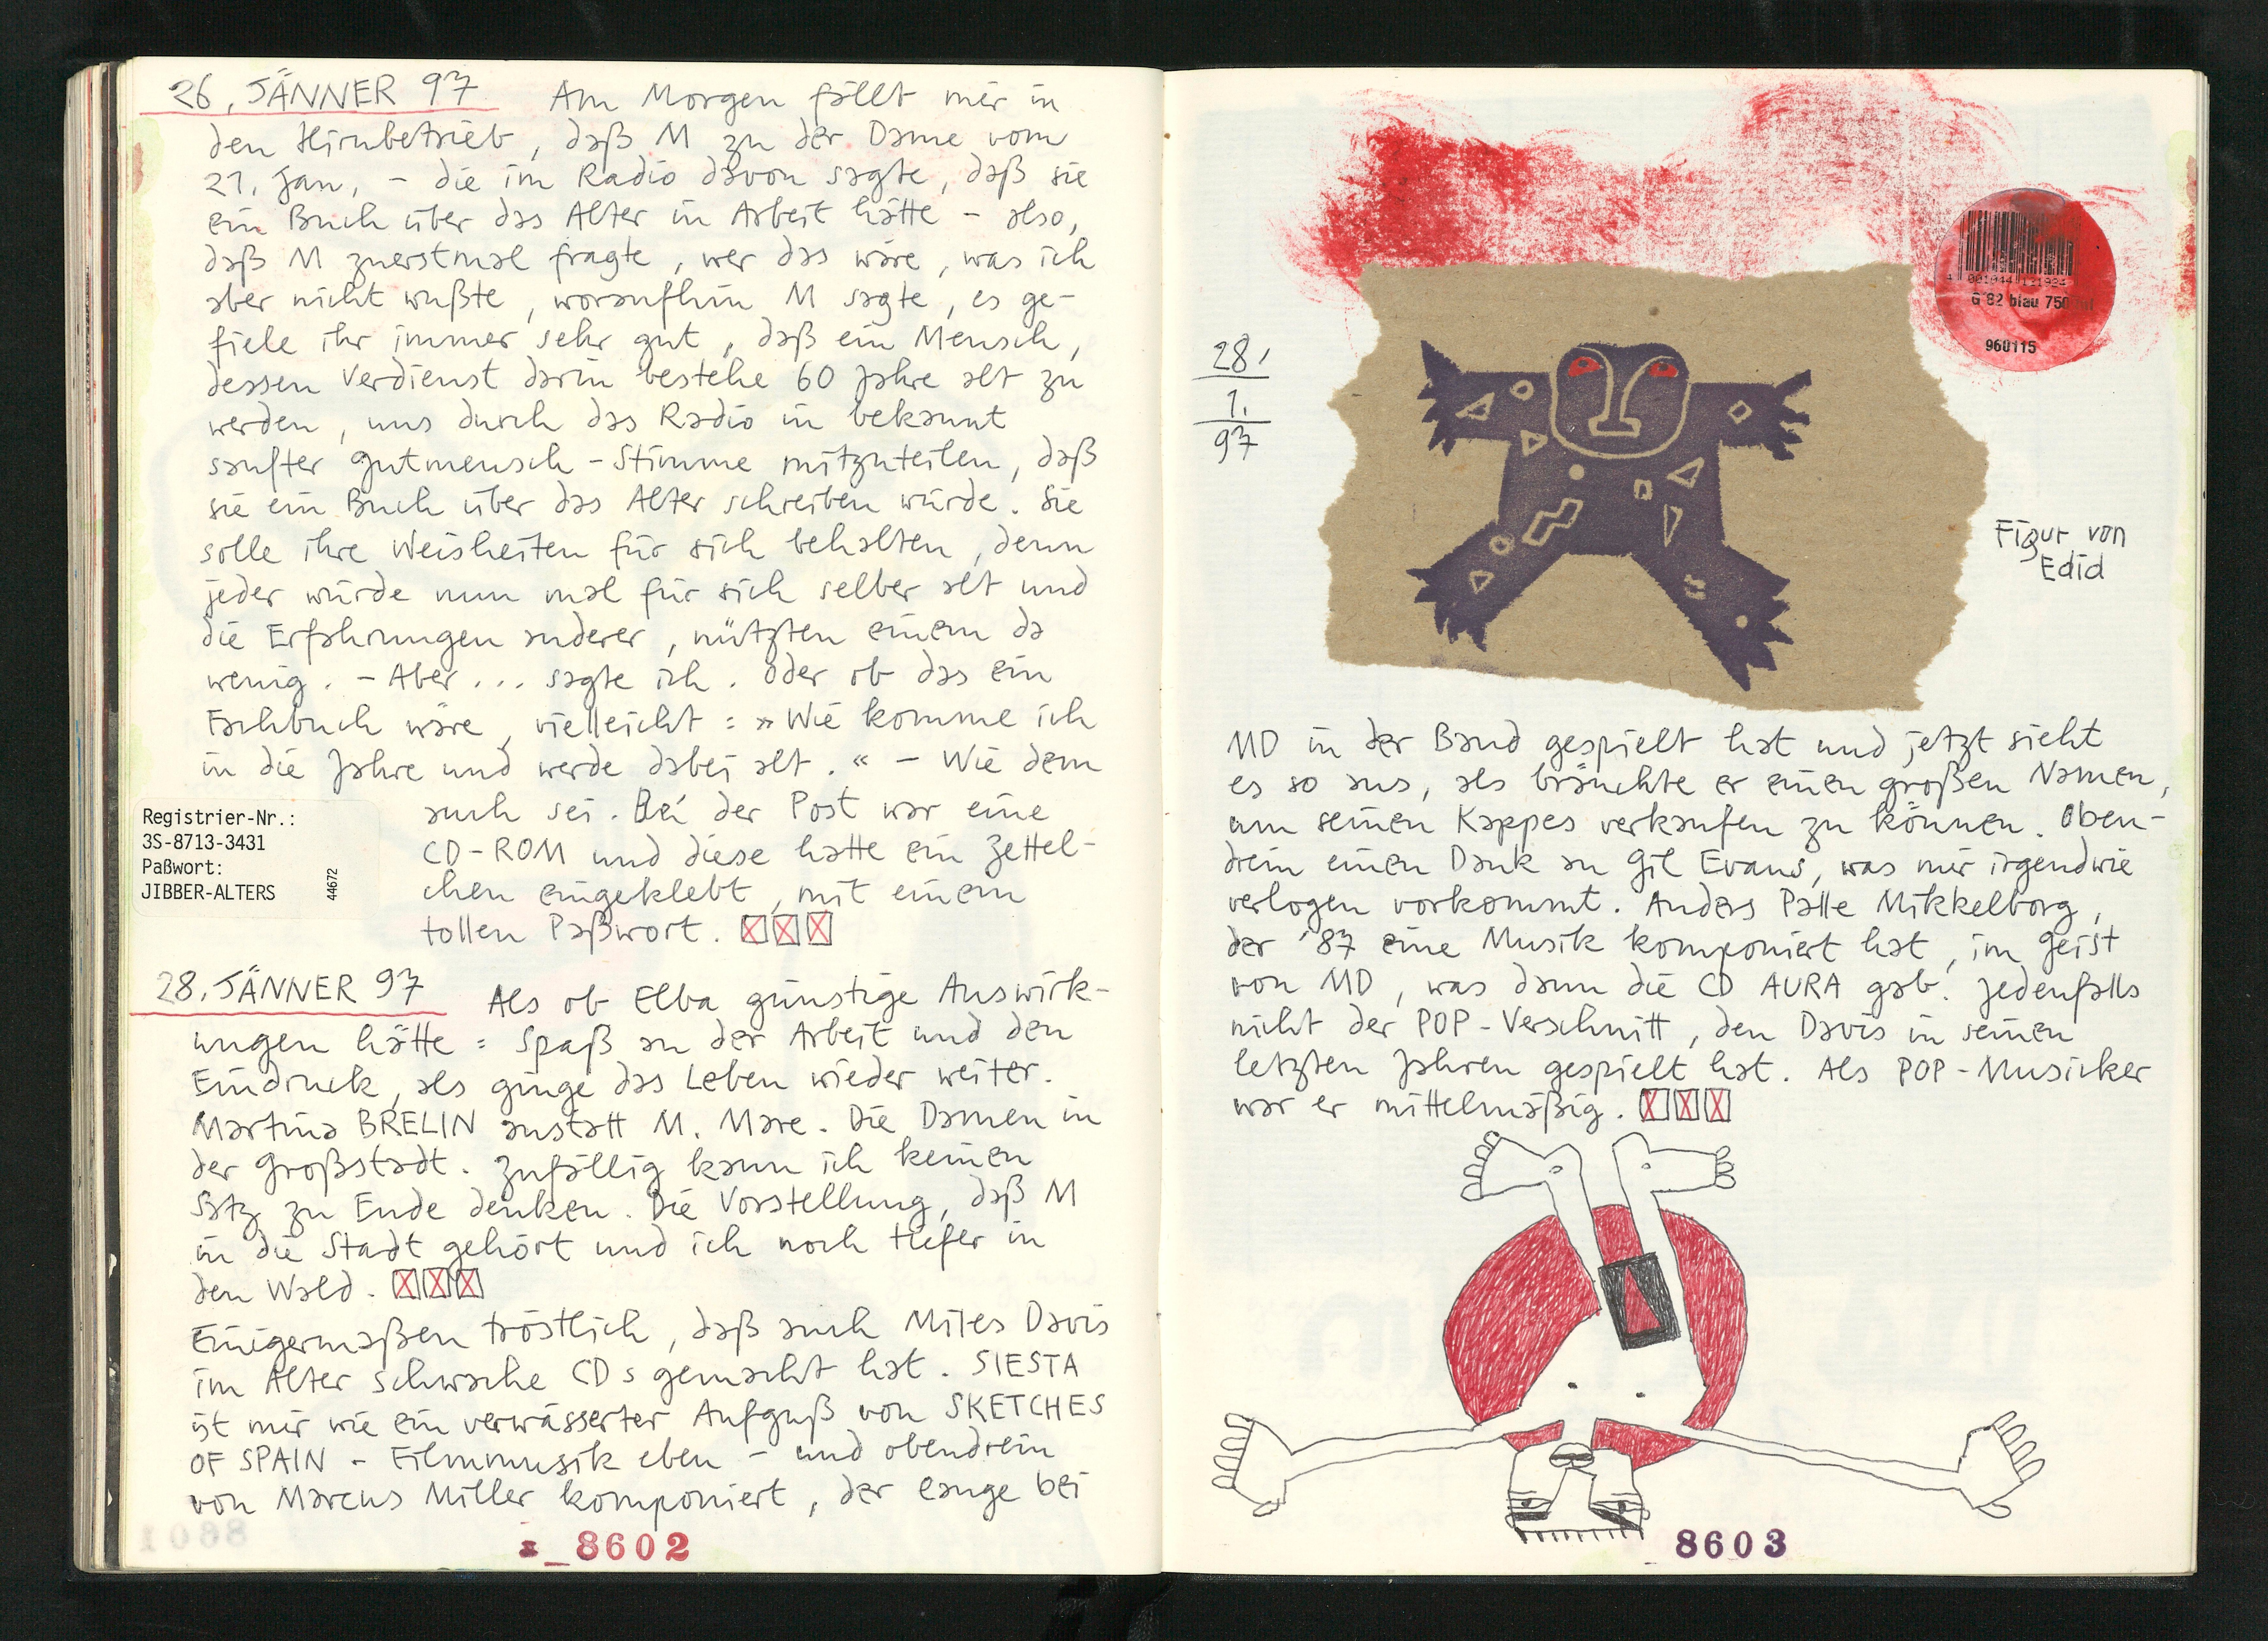 26. JÄNNER 97 Am Morgen fällt mir in
den Hirnbetrieb, daß M zu der Dame vom
21. Jan. - die im Radio davon sagte, daß sie
ein Buch über das Alter in Arbeit hätte - also,
daß M zuerstmal fragte, wer das wäre, was ich
aber nicht wußte, woraufhin M sagte, es ge-
fiele ihr immer sehr gut, daß ein Mensch,
dessen Verdienst darin bestehe 60 Jahre alt zu
werden, uns durch das Radio in bekannt
sanfter Gutmensch-Stimme mitzuteilen, daß
sie ein Buch über das Alter schreiben würde. Sie
solle ihre Weisheiten für sich behalten, denn
jeder würde nun mal für sich selber alt und
die Erfahrungen anderer, nützten einem da
wenig. - Aber... sagte ich. Oder ob das ein
Fachbuch wäre, vielleicht: »Wie komme ich
in die Jahre und werde dabei alt.« - Wie dem
auch sei. Bei der Post war eine
CD-ROM und diese hatte ein Zettel-
chen eingeklebt, mit einem
tollen Paßwort. XXX
Registrier-Nr.:
3S-8713-3431
Paßwort:
JIBBER-ALTERS
44672
28. JÄNNER 97 Als ob Elba günstige Auswirk-
ungen hätte: Spaß an der Arbeit und den
Eindruck, als ginge das Leben wieder weiter.
Martina BRELIN anstatt M. Mare. Die Damen in
der Großstadt. Zufällig kann ich keinen
Satz zu Ende denken. Die Vorstellung, daß M
in die Stadt gehört und ich noch tiefer in
den Wald. XXX
Einigermaßen tröstlich, daß auch Miles Davis
im Alter schwache CDs gemacht hat. SIESTA
ist mir wie ein verwässerter Aufguß von SKETCHES
OF SPAIN - Filmmusik eben - und obendrein
von Marcus Miller komponiert, der lange bei
8602
28.
1.
97
G 82 blau 750
960115
Figur von
Edid
MD in der Band gespielt hat und jetzt sieht
es so aus, als bräuchte er einen großen Namen,
um seinen Kappes verkaufen zu können. Oben-
drein einen Dank an Gil Evans, was mir irgendwie
verlogen vorkommt. Anders Palle Mikkelborg,
der '87 eine Musik komponiert hat, im Geist
von MD, was dann die CD AURA gab. Jedenfalls
nicht der POP-Verschnitt, den Davis in seinen
letzten Jahren gespielt hat. Als POP-Musicker
war er mittelmäßig. XXX
8603